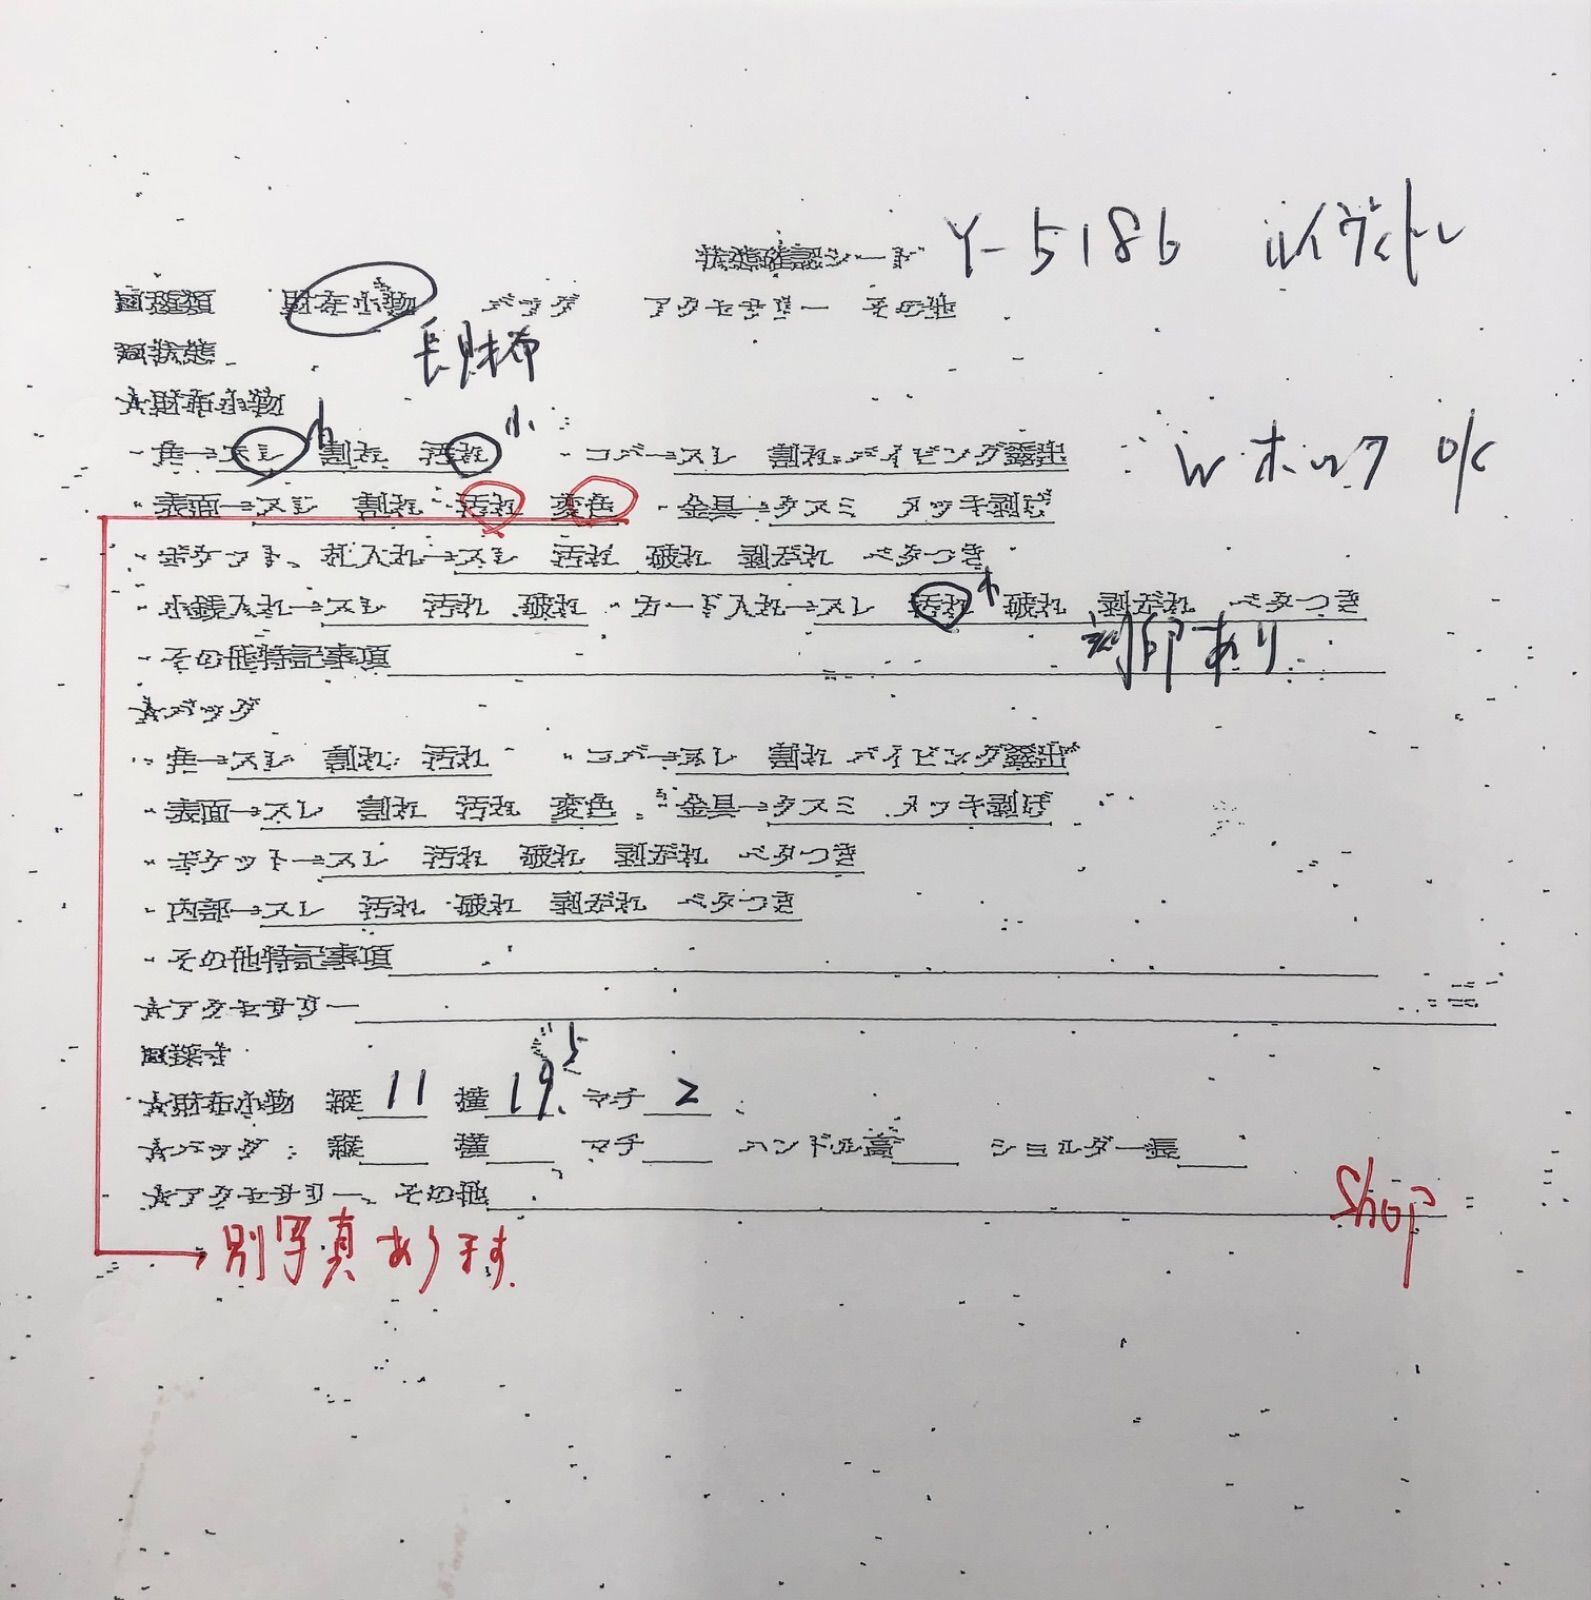 状態確認シート Y-5186 ルイヴィトン
種類 財布小物 バッグ アクセサリー その他
状態 長財布
☆財布小物
・角→スレ 小 割れ 汚れ 小 ・コバ→スレ 割れ パイピング露出 Wホック OK
・表面→スレ 割れ 汚れ 変色 ・金具→クスミ メッキ剥げ
・ポケット、札入れ→スレ 汚れ 破れ 剥がれ ベタつき
・小銭入れ→スレ 汚れ 破れ ・カード入れ→スレ 汚れ 小 破れ 剥がれ ベタつき
・その他特記事項 刻印あり
☆バッグ
・角→スレ 割れ 汚れ ・コバ→スレ 割れ パイピング露出
・表面→スレ 割れ 汚れ 変色 ・金具→クスミ メッキ剥げ
・ポケット→スレ 汚れ 破れ 剥がれ ベタつき
・内部→スレ 汚れ 破れ 剥がれ ベタつき
・その他特記事項
☆アクセサリー
採寸
☆財布小物 縦 11 横 19.5 マチ 2
☆バッグ 縦 横 マチ ハンドル高 ショルダー長
☆アクセサリー、その他 Shop
→別写真あります